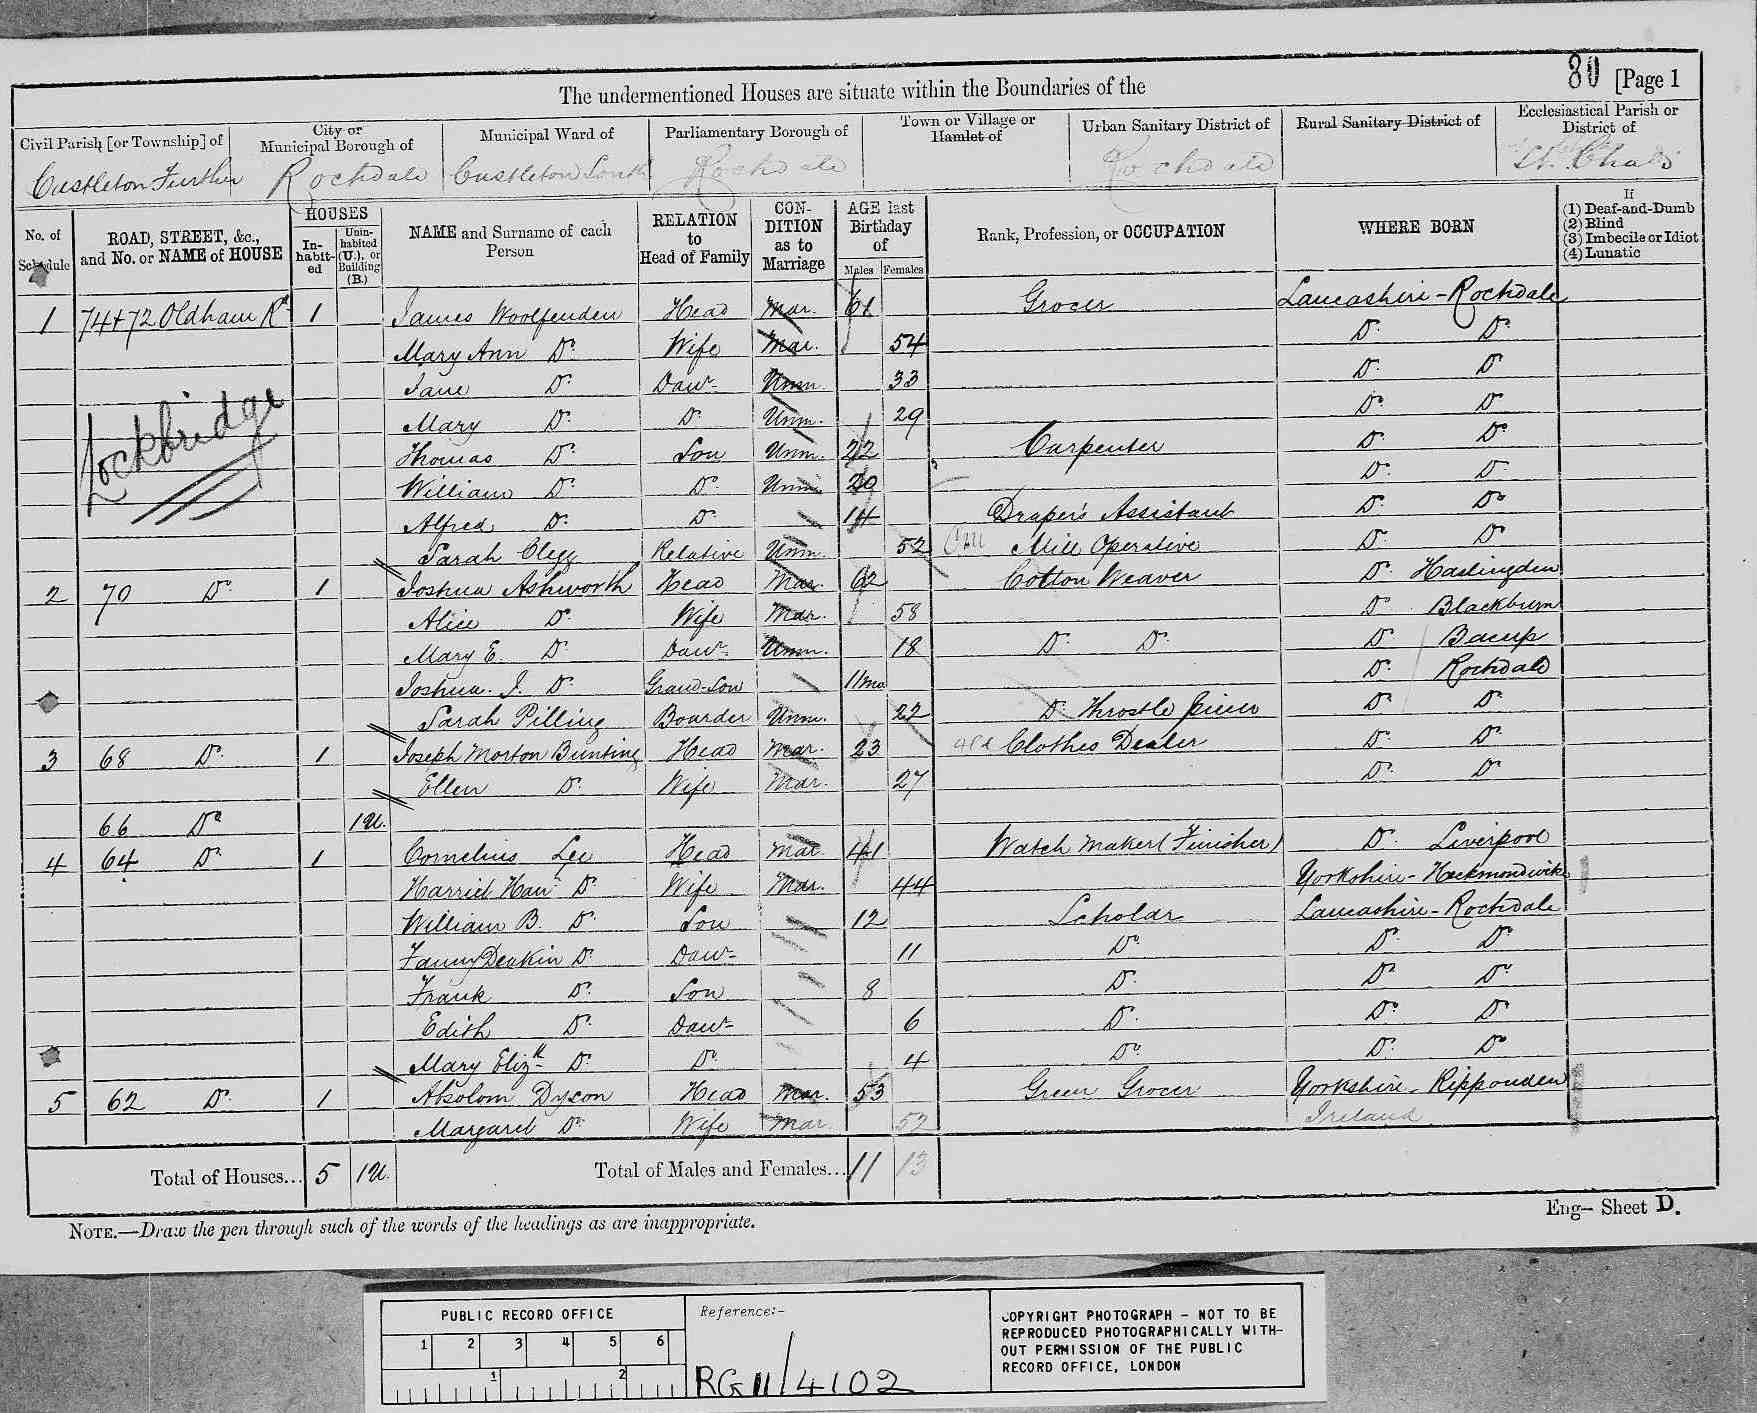 80 [Page 1
The undermentioned Houses are situate within the Boundaries of the
Civil Parish [or Township] of
City or Municipal Borough of
Municipal Ward of
Parliamentary Borough of
Town or Village or Hamlet of
Urban Sanitary District of
Rural Sanitary District of
Ecclesiastical Parish or District of
Castleton Further Rochdale Castleton South Rochdale Rochdale St. Chads
No. of Schedule
ROAD, STREET, &c., and No. or NAME of HOUSE
HOUSES
In-habit-ed
Unin-habited (U.), or Building (B.)
NAME and Surname of each Person
RELATION to Head of Family
CON-DITION as to Marriage
AGE last Birthday of
Males Females
Rank, Profession, or OCCUPATION
WHERE BORN
If
(1) Deaf-and-Dumb
(2) Blind
(3) Imbecile or Idiot
(4) Lunatic
1 74+72 Oldham Rd 1 James Woolfenden Head Mar. 61 Grocer Lancashire - Rochdale
Mary Ann Do Wife Mar. 54 Do Do
Jane Do Daur Unm. 33 Do Do
Mary Do Do Unm. 29 Do Do
Lockbridge
Thomas Do Son Unm. 22 Carpenter Do Do
William Do Do Unm. 20 Do Do
Alfred Do Do 14 Draper's Assistant Do Do
Sarah Clegg Relative Unm. 52 Mill Operative Do Do
2 70 Do 1 Joshua Ashworth Head Mar. 62 Cotton Weaver Do Haslingden
Alice Do Wife Mar. 58 Do Blackburn
Mary E. Do Daur Unm. 18 Do Do Do Bacup
Joshua. J. Do Grand-Son 11mo Do Rochdale
Sarah Pilling Boarder Unm. 22 Do Throstle piecer Do Do
3 68 Do 1 Joseph Morton Bunting Head Mar. 23 Clothes Dealer Do Do
Ellen Do Wife Mar. 27 Do Do
66 Do 1U.
4 64 Do 1 Cornelius Lee Head Mar. 41 Watch Maker (Finisher) Do Liverpool
Harriet Han Do Wife Mar. 44 Yorkshire - Heckmondwike
William B. Do Son 12 Scholar Lancashire - Rochdale
Fanny Deakin Do Daur 11 Do Do Do
Frank Do Son 8 Do Do Do
Edith Do Daur 6 Do Do Do
Mary Elizth Do Do 4 Do Do Do
5 62 Do 1 Absolom Dyson Head Mar. 53 Green Grocer Yorkshire - Ripponden
Margaret Do Wife Mar. 52 Ireland
Total of Houses... 5 1U. Total of Males and Females... 11 13
Eng— Sheet D.
NOTE.—Draw the pen through such of the words of the headings as are inappropriate.
PUBLIC RECORD OFFICE
1 2 3 4 5 6
1 2
Reference:-
RG 11/4102
COPYRIGHT PHOTOGRAPH - NOT TO BE
REPRODUCED PHOTOGRAPHICALLY WITH-
OUT PERMISSION OF THE PUBLIC
RECORD OFFICE, LONDON